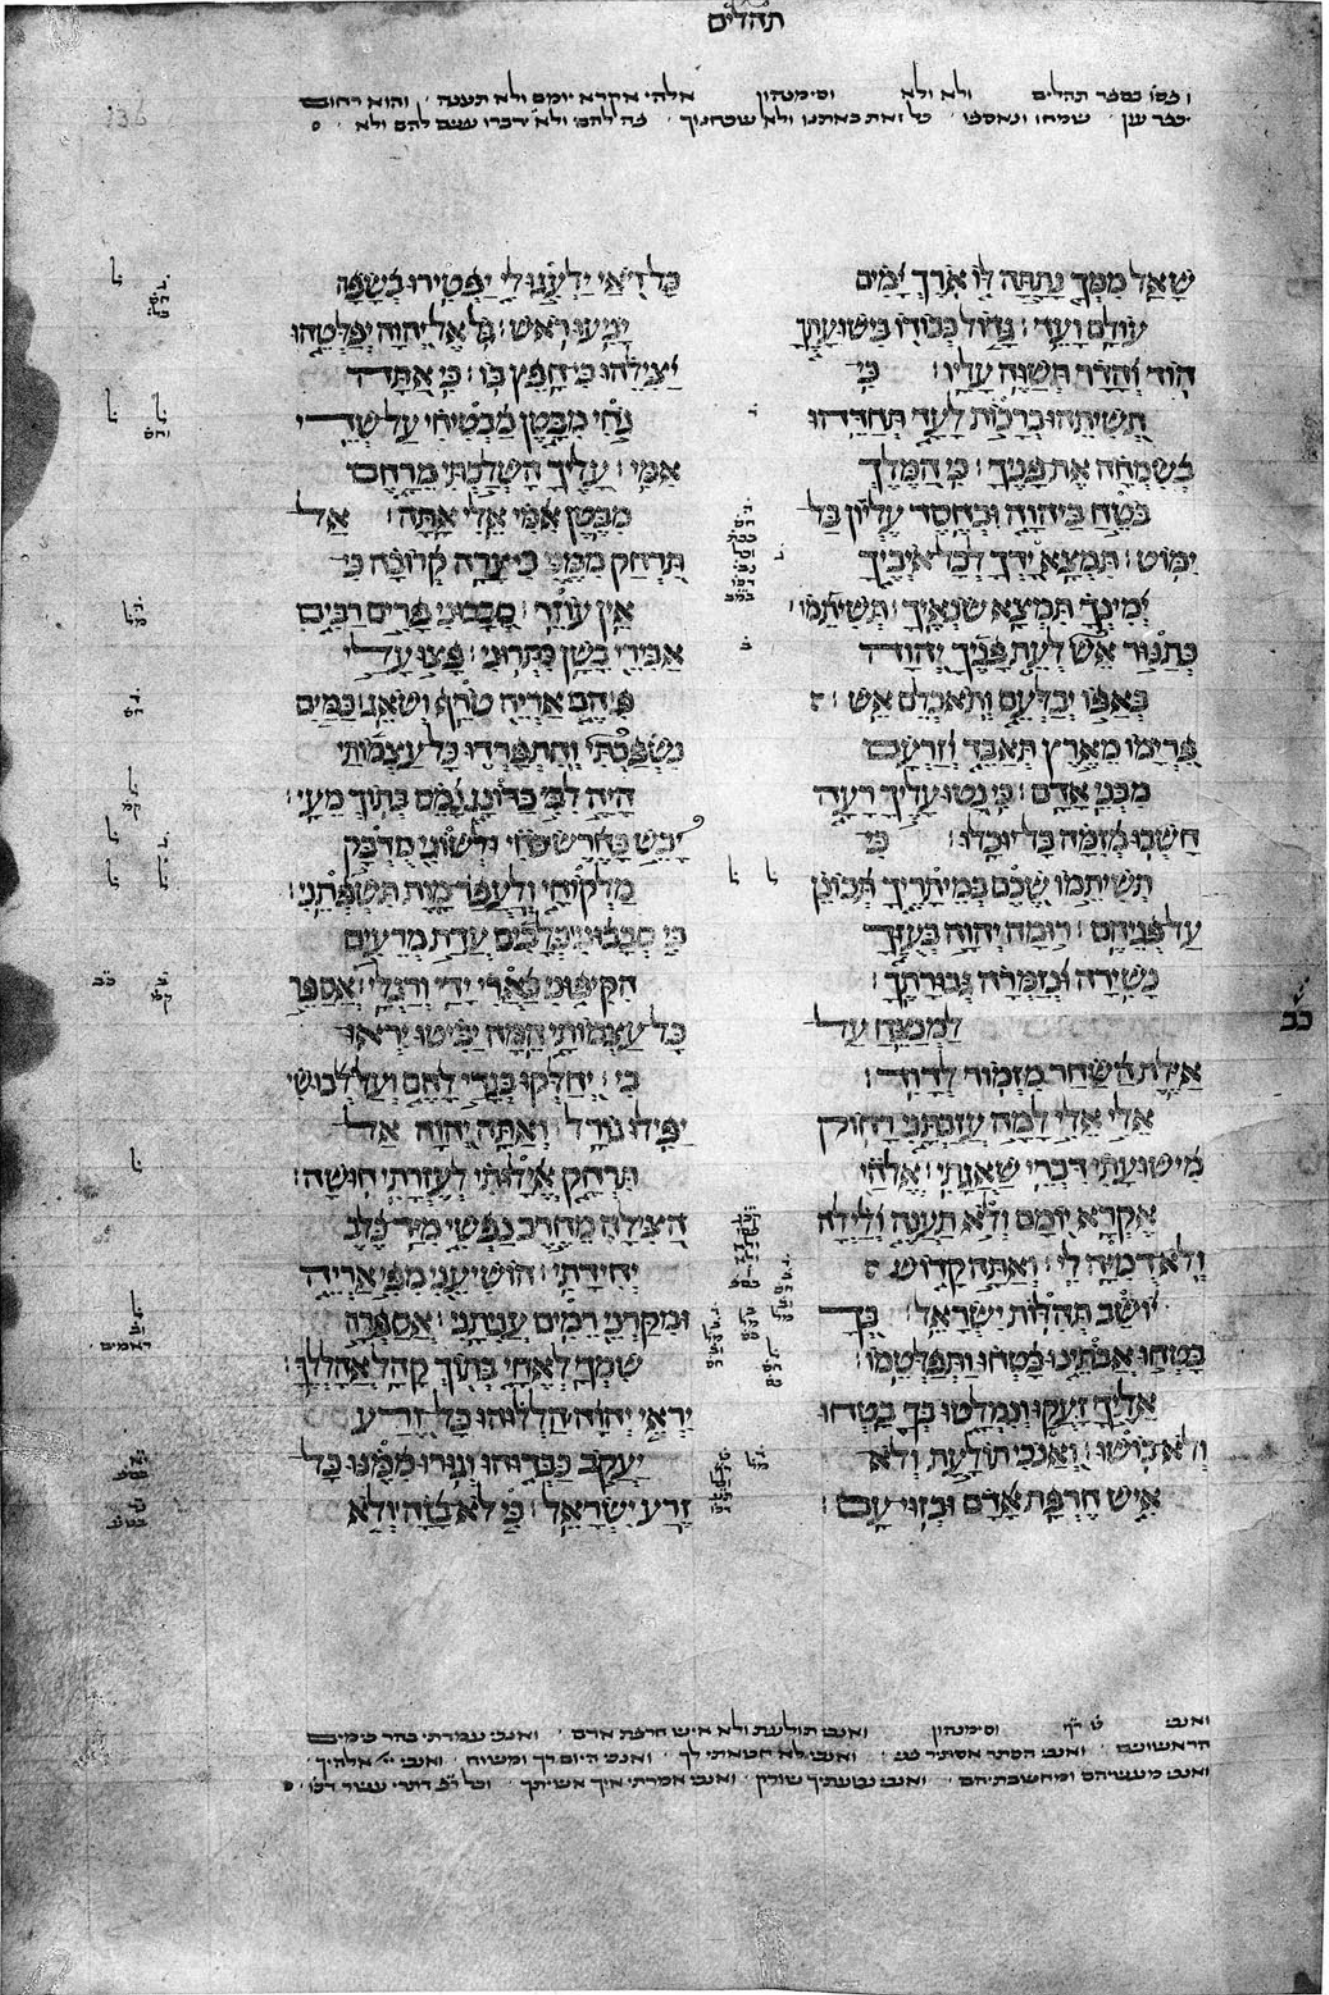 תהלים
ו בסו בספר תהלים ולא ולא וסימנהון אלהי אקרא יומם ולא תענה והוא רחום
יכפר עון שמחו ונאספו כל זאת באתנו ולא שכחנוך פה להם ולא ידברו עינים להם ולא
שָׁאַל מִמְּךָ נָתַתָּה לּוֹ אֹרֶךְ יָמִים
עוֹלָם וָעֶד׃ גָּדוֹל כְּבוֹדוֹ בִּישׁוּעָתֶךָ
הוֹד וְהָדָר תְּשַׁוֶּה עָלָיו׃ כִּי
תְשִׁיתֵהוּ בְרָכוֹת לָעַד תְּחַדֵּהוּ
בְשִׂמְחָה אֶת פָּנֶיךָ׃ כִּי הַמֶּלֶךְ
בֹּטֵחַ בַּיהוָה וּבְחֶסֶד עֶלְיוֹן בַּל
יִמּוֹט׃ תִּמְצָא יָדְךָ לְכָל אֹיְבֶיךָ
יְמִינְךָ תִּמְצָא שֹׂנְאֶיךָ׃ תְּשִׁיתֵמוֹ
כְּתַנּוּר אֵשׁ לְעֵת פָּנֶיךָ יְהוָה
בְּאַפּוֹ יְבַלְּעֵם וְתֹאכְלֵם אֵשׁ׃
פִּרְיָמוֹ מֵאֶרֶץ תְּאַבֵּד וְזַרְעָם
מִבְּנֵי אָדָם׃ כִּי נָטוּ עָלֶיךָ רָעָה
חָשְׁבוּ מְזִמָּה בַּל יוּכָלוּ׃ כִּי
תְּשִׁיתֵמוֹ שֶׁכֶם בְּמֵיתָרֶיךָ תְּכוֹנֵן
עַל פְּנֵיהֶם׃ רוּמָה יְהוָה בְּעֻזֶּךָ
נָשִׁירָה וּנְזַמְּרָה גְּבוּרָתֶךָ׃
כב
לַמְנַצֵּחַ עַל
אַיֶּלֶת הַשַּׁחַר מִזְמוֹר לְדָוִד׃
אֵלִי אֵלִי לָמָה עֲזַבְתָּנִי רָחוֹק
מִישׁוּעָתִי דִּבְרֵי שַׁאֲגָתִי׃ אֱלֹהַי
אֶקְרָא יוֹמָם וְלֹא תַעֲנֶה וְלַיְלָה
וְלֹא דֻמִיָּה לִי׃ וְאַתָּה קָדוֹשׁ
יוֹשֵׁב תְּהִלּוֹת יִשְׂרָאֵל׃ בְּךָ
בָּטְחוּ אֲבֹתֵינוּ בָּטְחוּ וַתְּפַלְּטֵמוֹ׃
אֵלֶיךָ זָעֲקוּ וְנִמְלָטוּ בְּךָ בָטְחוּ
וְלֹא בוֹשׁוּ׃ וְאָנֹכִי תוֹלַעַת וְלֹא
אִישׁ חֶרְפַּת אָדָם וּבְזוּי עָם׃
כָּל רֹאַי יַלְעִגוּ לִי יַפְטִירוּ בְשָׂפָה
יָנִיעוּ רֹאשׁ׃ גֹּל אֶל יְהוָה יְפַלְּטֵהוּ
יַצִּילֵהוּ כִּי חָפֵץ בּוֹ׃ כִּי אַתָּה
גֹחִי מִבָּטֶן מַבְטִיחִי עַל שְׁדֵי
אִמִּי׃ עָלֶיךָ הָשְׁלַכְתִּי מֵרָחֶם
מִבֶּטֶן אִמִּי אֵלִי אָתָּה׃ אַל
תִּרְחַק מִמֶּנִּי כִּי צָרָה קְרוֹבָה כִּי
אֵין עוֹזֵר׃ סְבָבוּנִי פָּרִים רַבִּים
אַבִּירֵי בָשָׁן כִּתְּרוּנִי׃ פָּצוּ עָלַי
פִּיהֶם אַרְיֵה טֹרֵף וְשֹׁאֵג׃ כַּמַּיִם
נִשְׁפַּכְתִּי וְהִתְפָּרְדוּ כָּל עַצְמוֹתָי
הָיָה לִבִּי כַּדּוֹנָג נָמֵס בְּתוֹךְ מֵעָי׃
יָבֵשׁ כַּחֶרֶשׂ כֹּחִי וּלְשׁוֹנִי מֻדְבָּק
מַלְקוֹחָי וְלַעֲפַר מָוֶת תִּשְׁפְּתֵנִי׃
כִּי סְבָבוּנִי כְּלָבִים עֲדַת מְרֵעִים
הִקִּיפוּנִי כָּאֲרִי יָדַי וְרַגְלָי׃ אֲסַפֵּר
כָּל עַצְמוֹתָי הֵמָּה יַבִּיטוּ יִרְאוּ
בִי׃ יְחַלְּקוּ בְגָדַי לָהֶם וְעַל לְבוּשִׁי
יַפִּילוּ גוֹרָל׃ וְאַתָּה יְהוָה אַל
תִּרְחָק אֱיָלוּתִי לְעֶזְרָתִי חוּשָׁה׃
הַצִּילָה מֵחֶרֶב נַפְשִׁי מִיַּד כֶּלֶב
יְחִידָתִי׃ הוֹשִׁיעֵנִי מִפִּי אַרְיֵה
וּמִקַּרְנֵי רֵמִים עֲנִיתָנִי׃ אֲסַפְּרָה
שִׁמְךָ לְאֶחָי בְּתוֹךְ קָהָל אֲהַלְלֶךָּ׃
יִרְאֵי יְהוָה הַלְלוּהוּ כָּל זֶרַע
יַעֲקֹב כַּבְּדוּהוּ וְגוּרוּ מִמֶּנּוּ כָּל
זֶרַע יִשְׂרָאֵל׃ כִּי לֹא בָזָה וְלֹא
ואנכי ט ר״פ וסימנהון ואנכי תולעת ולא איש חרפת אדם ואנכי עמדתי בהר כימים
הראשונים ואנכי הסתר אסתיר פני ואנכי לא חטאתי לך ואנכי היום רך ומשוח ואנכי יי אלהיך
ואנכי מעשיהם ומחשבתיהם ואנכי נטעתיך שורק ואנכי אמרתי איך אשיתך וכל ר״פ דתרי עשר דכו